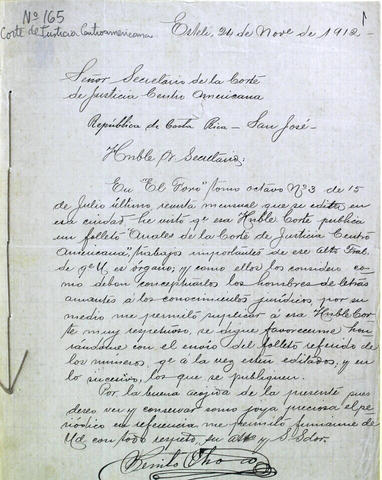 Nº 165
Corte de Justicia Centroamericana
1
Estelí, 24 de Nove de 1912-
Señor Secretario de la Corte
de Justicia Centro Americana
República de Costa Rica - San José -
Hnble Sr Secretario:
En "El Foro", tomo octavo Nº 3 de 15
de Julio último, revista mensual que se edita en
esa ciudad, he visto qe esa Hnble Corte publica
un folleto "Anales de la Corte de Justicia Centro
Americana", trabajos importantes de ese alto Trbal.
de qe U es órgano; y como ellos los considero co-
mo deben conceptuarlos los hombres de letras
amantes á los conocimientos jurídicos, por su
medio me permito suplicar á esa Hnble Cor-
te muy respetuoso, se digne favorecerme hon-
rándome con el envío del folleto referido de
los números, qe á la vez estén editados, y en
lo sucesivo, los que se publiquen.
Por la buena acojida de la presente pues
deseo ver y conservar como joya preciosa el pe-
riódico en referencia me permito firmarme de
Ud con todo respeto, su atto y S. Sdor.
Benito